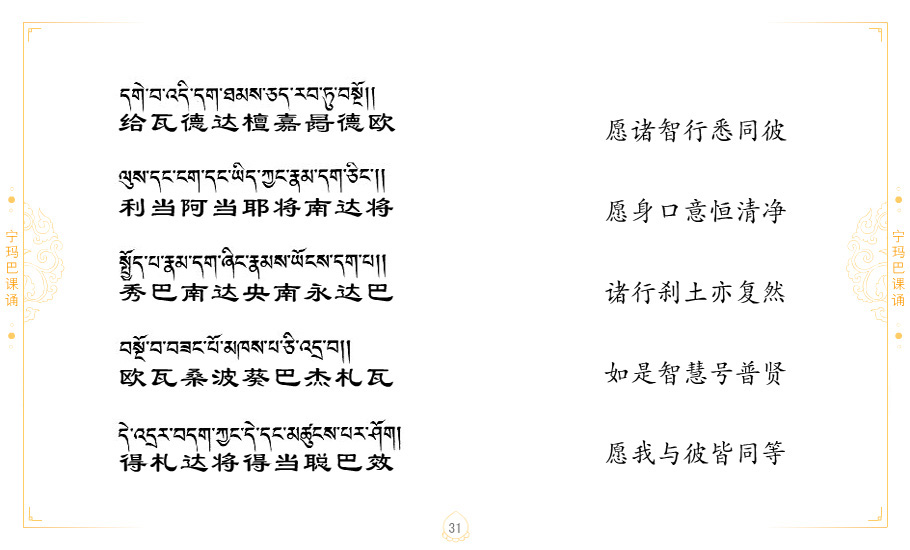 དགེ་བ་འདི་དག་ཐམས་ཅད་རབ་ཏུ་བསྔོ།།
给瓦德达檀嘉哥德欧
愿诸智行悉同彼
ལུས་དང་ངག་དང་ཡིད་ཀྱང་རྣམ་དག་ཅིང་།།
利当阿当耶将南达将
愿身口意恒清净
སྤྱོད་པ་རྣམ་དག་ཞིང་རྣམས་ཡོངས་དག་པ།།
秀巴南达央南永达巴
诸行刹土亦复然
བསྔོ་བ་བཟང་པོ་མཁས་པ་ཅི་འདྲ་བ།།
欧瓦桑波葵巴杰札瓦
如是智慧号普贤
དེ་འདྲར་བདག་ཀྱང་དེ་དང་མཚུངས་པར་ཤོག།
得札达将得当聪巴效
愿我与彼皆同等
宁玛巴课诵
宁玛巴课诵
31